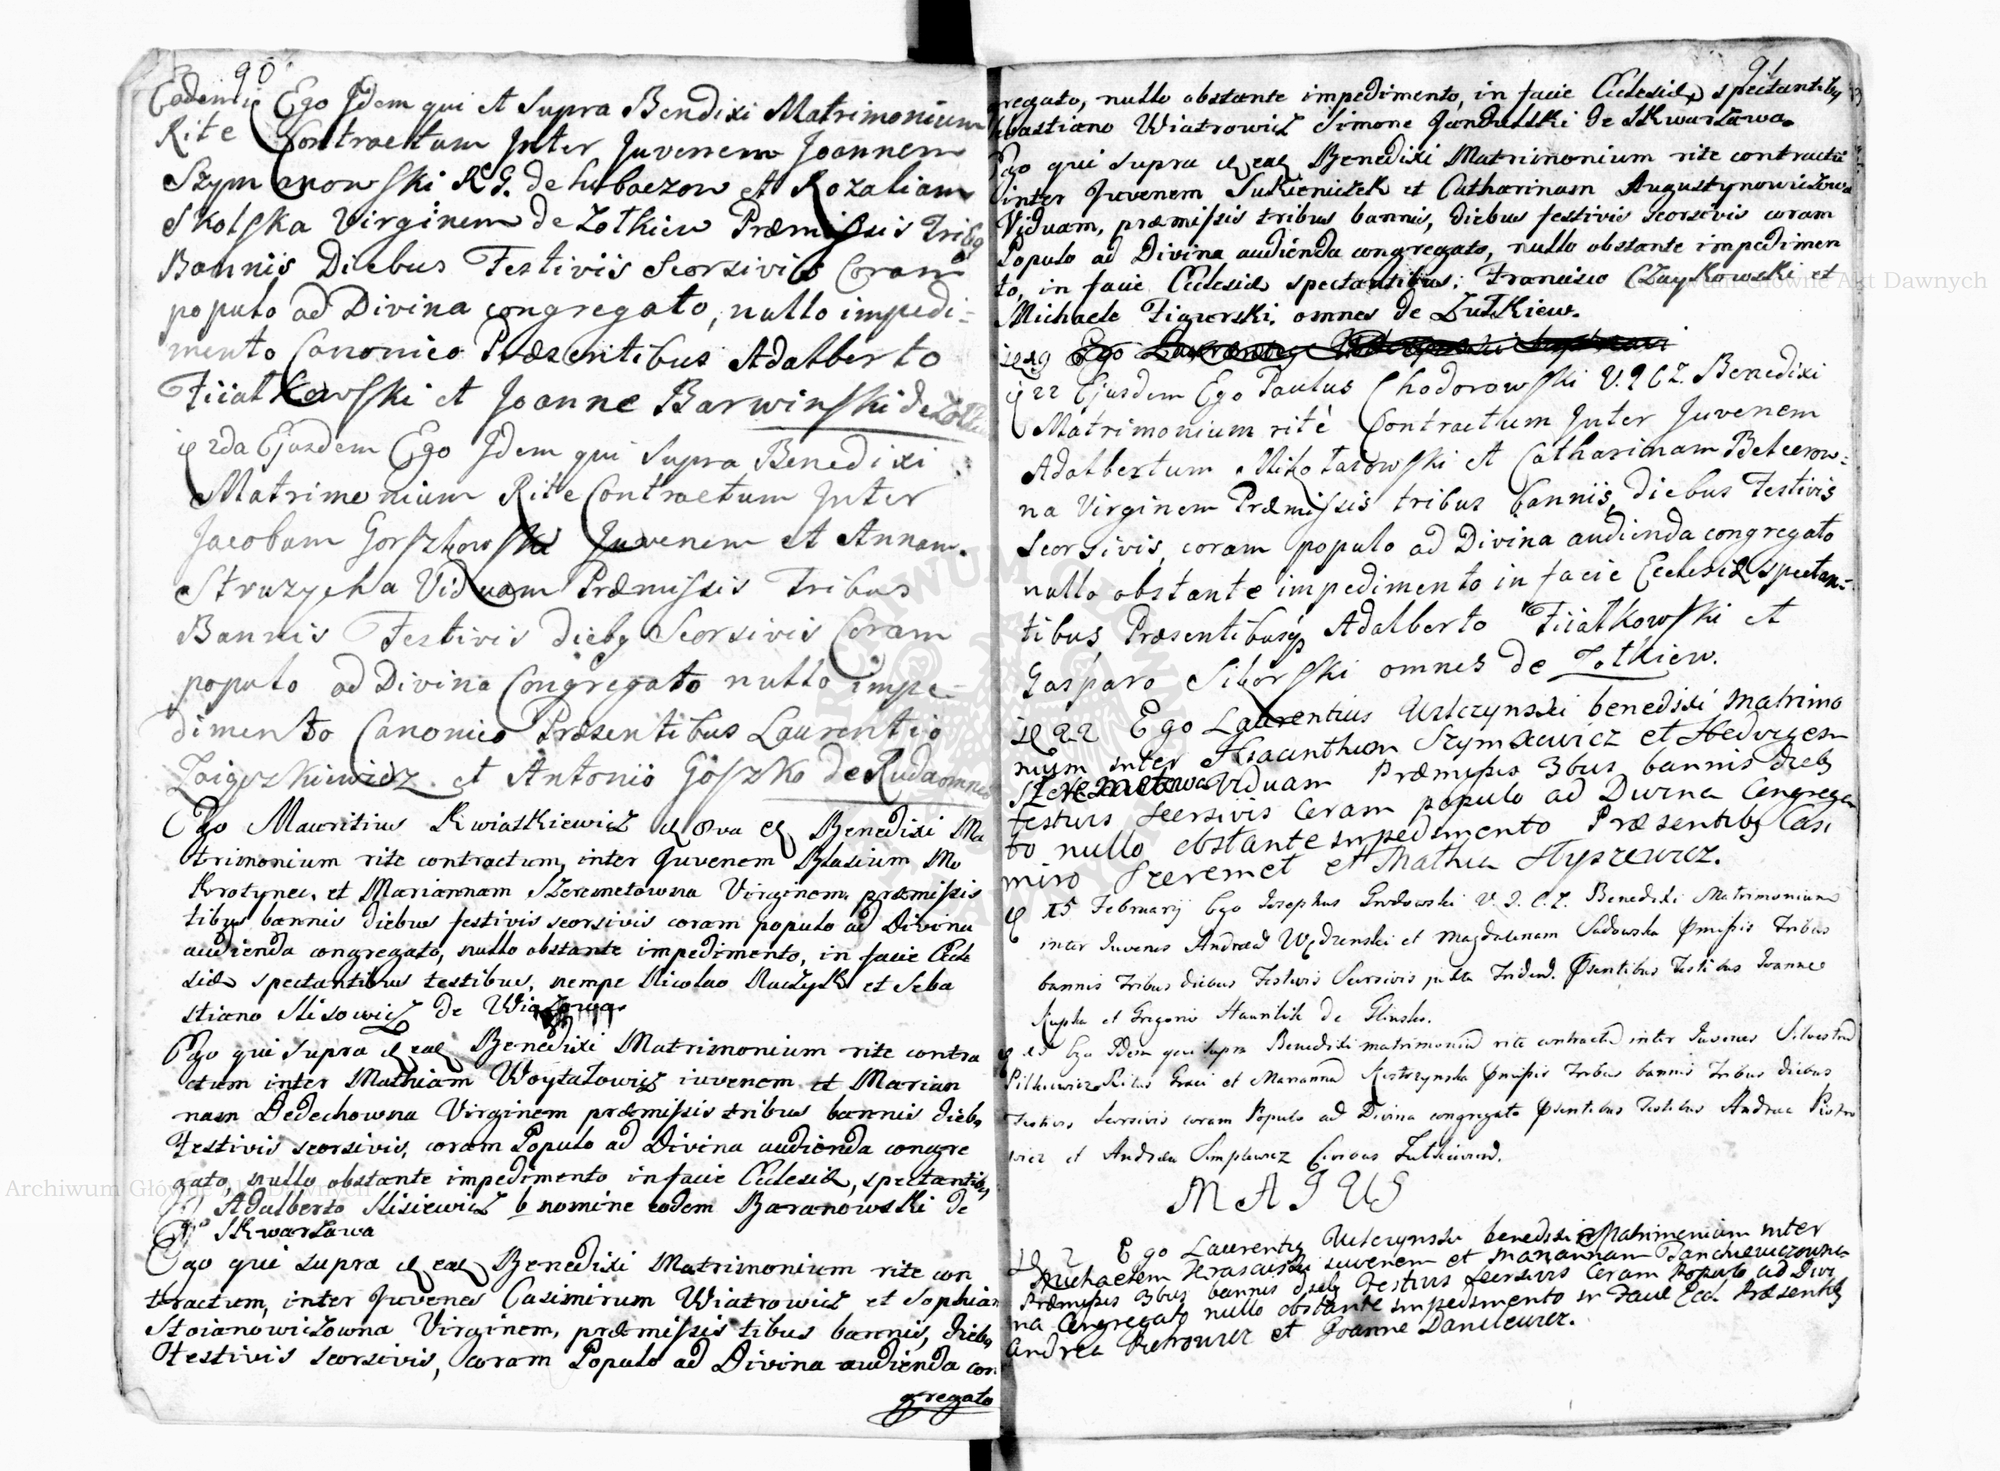 90
Eodem die Ego Idem qui et Supra Benedixi Matrimonium
Rite Contractum Inter Juvenem Joannem
Szymanowski R. G. de Lubaczow et Rozaliam
Skolska Virginem de Zolkiew Præmissis Tribq
Bannis Diebus Festivis Seorsivis Coram
populo ad Divina congregato, nullo impedi=
mento Canonico Præsentibus Adalberto
Fiiatkowski et Joanne Barwinski de Zolkiew
die 2da Ejusdem Ego Idem qui Supra Benedixi
Matrimonium Rite Contractum Inter
Jacobum Gorszkowski Juvenem et Annam
Struzycha Viduam Præmissis Tribus
Bannis Festivis diebq Seorsivis Coram
populo ad Divina Congregato nullo impe=
dimento Canonico Præsentibus Laurentio
et Antonio Goszko de Ruda omnes
Ego Mauritius Kwiatkiewicz die 8va Benedixi Ma
trimonium rite contractum, inter Juvenem Blasium Mo
krotynec, et Mariannam Szeremetowna Virginem, præmissis
tibus bannis diebus festivis seorsivis coram populo ad Divina
audienda congregato, nullo obstante impedimento, in facie Eccle
siæ spectantibus testibus, nempe Nicolao et Seba
stiano Misowicz de Wiazowa
Ego qui supra die ead Benedixi Matrimonium rite contra
ctum inter Mathiam Woytalowicz iuvenem et Marian
nam Dedechowna Virginem præmissis tribus bannis diebq
Festivis seorsivis, coram Populo ad Divina audienda congre
gato, nullo obstante impedimento in facie Ecclesiæ, spectantibq
Adalberto Misiewicz nomine eodem Baranowski de
Skwarzawa
Ego qui supra die ead Benedixi Matrimonium rite con
tractum, inter Juvenes Casimirum Wiatrowicz et Sophiam
Stoianowiczowna Virginem, præmissis tibus bannis, diebq
Festivis seorsivis, coram Populo ad Divina audienda con
gregato
91
gregato, nullo obstante impedimento, in facie Ecclesiæ, spectantibq
Sebastiano Wiatrowicz Simone de Skwarzawa
Ego qui supra die ead Benedixi Matrimonium rite contractu
inter Juvenem Sukieniczek et Catharinam Augustynowiczowa
Viduam, præmissis tribus bannis, diebus festivis seorsivis coram
Populo ad Divina audienda congregato, nullo obstante impedimen
to, in facie Ecclesiæ spectantibus: Francisco Czaykowski et
Michaele Figurski, omnes de Zulkiew.
die 19 Ego
die 22 Ejusdem Ego Paulus Chodorowski V. E. Z. Benedixi
Matrimonium ritè Contractum Inter Juvenem
Adalbertum Mikolaiowski et Catharinam Belcerow=
na Virginem Præmissis tribus bannis, diebus Festivis
seorsivis, coram populo ad Divina audienda congregato
nullo obstante impedimento in facie Ecclesiæ spectan=
tibus, Præsentibusq Adalberto Fiiatkowski et
Gasparo Siborski omnes de Zolkiew.
die 22 Ego Laurentius Ustrzynski benedixi matrimo
nium inter Hiacinthum Szymkiewicz et Hedvigem
Szeremetowa Viduam Præmissis 3bus bannis diebq
festivis seorsivis Coram populo ad Divina Congrega
to nullo obstante impedimento Præsentibq Casi
miro Szeremet et Mathia Hyszewicz.
die 15 Februarij Ego Josephus Grodowski V. E. Z. Benedixi Matrimonium
inter Juvenes Andream Wędzenski et Magdalenam Sadowska præmissis Tribus
bannis Tribus diebus Festivis Seorsivis juxta Trident. Præsentibus Testibus Joanne
Kupka et Gregorio Hawrilik de Glinsko.
die 25 Ego Idem qui Supra Benedixi matrimoniu rite contractu inter Juvenes Silvestrum
Pilkiewicz Ritus Graeci et Marianna Kostrzynska præmissis Tribus bannis Tribus diebus
Festivis Seorsivis coram Populo ad Divina congregato Præsentibus Testibus Andrea Piotro
wicz et Andrea Simplewicz Civibus
MAJUS
die 2 Ego Laurentiq Ustrzynski benedixi Matrimonium inter
Michaelem iuvenem et Mariannam Danilewiczowna
Præmissis 3bus bannis diebq Festivis seorsivis Coram Populo ad Divi
na Congregato nullo obstante impedimento in Facie Eccl. Præsentibq
Andrea Pietrowicz et Joanne Danilewicz.
Archiwum Główne Akt Dawnych
Archiwum Główne Akt Dawnych